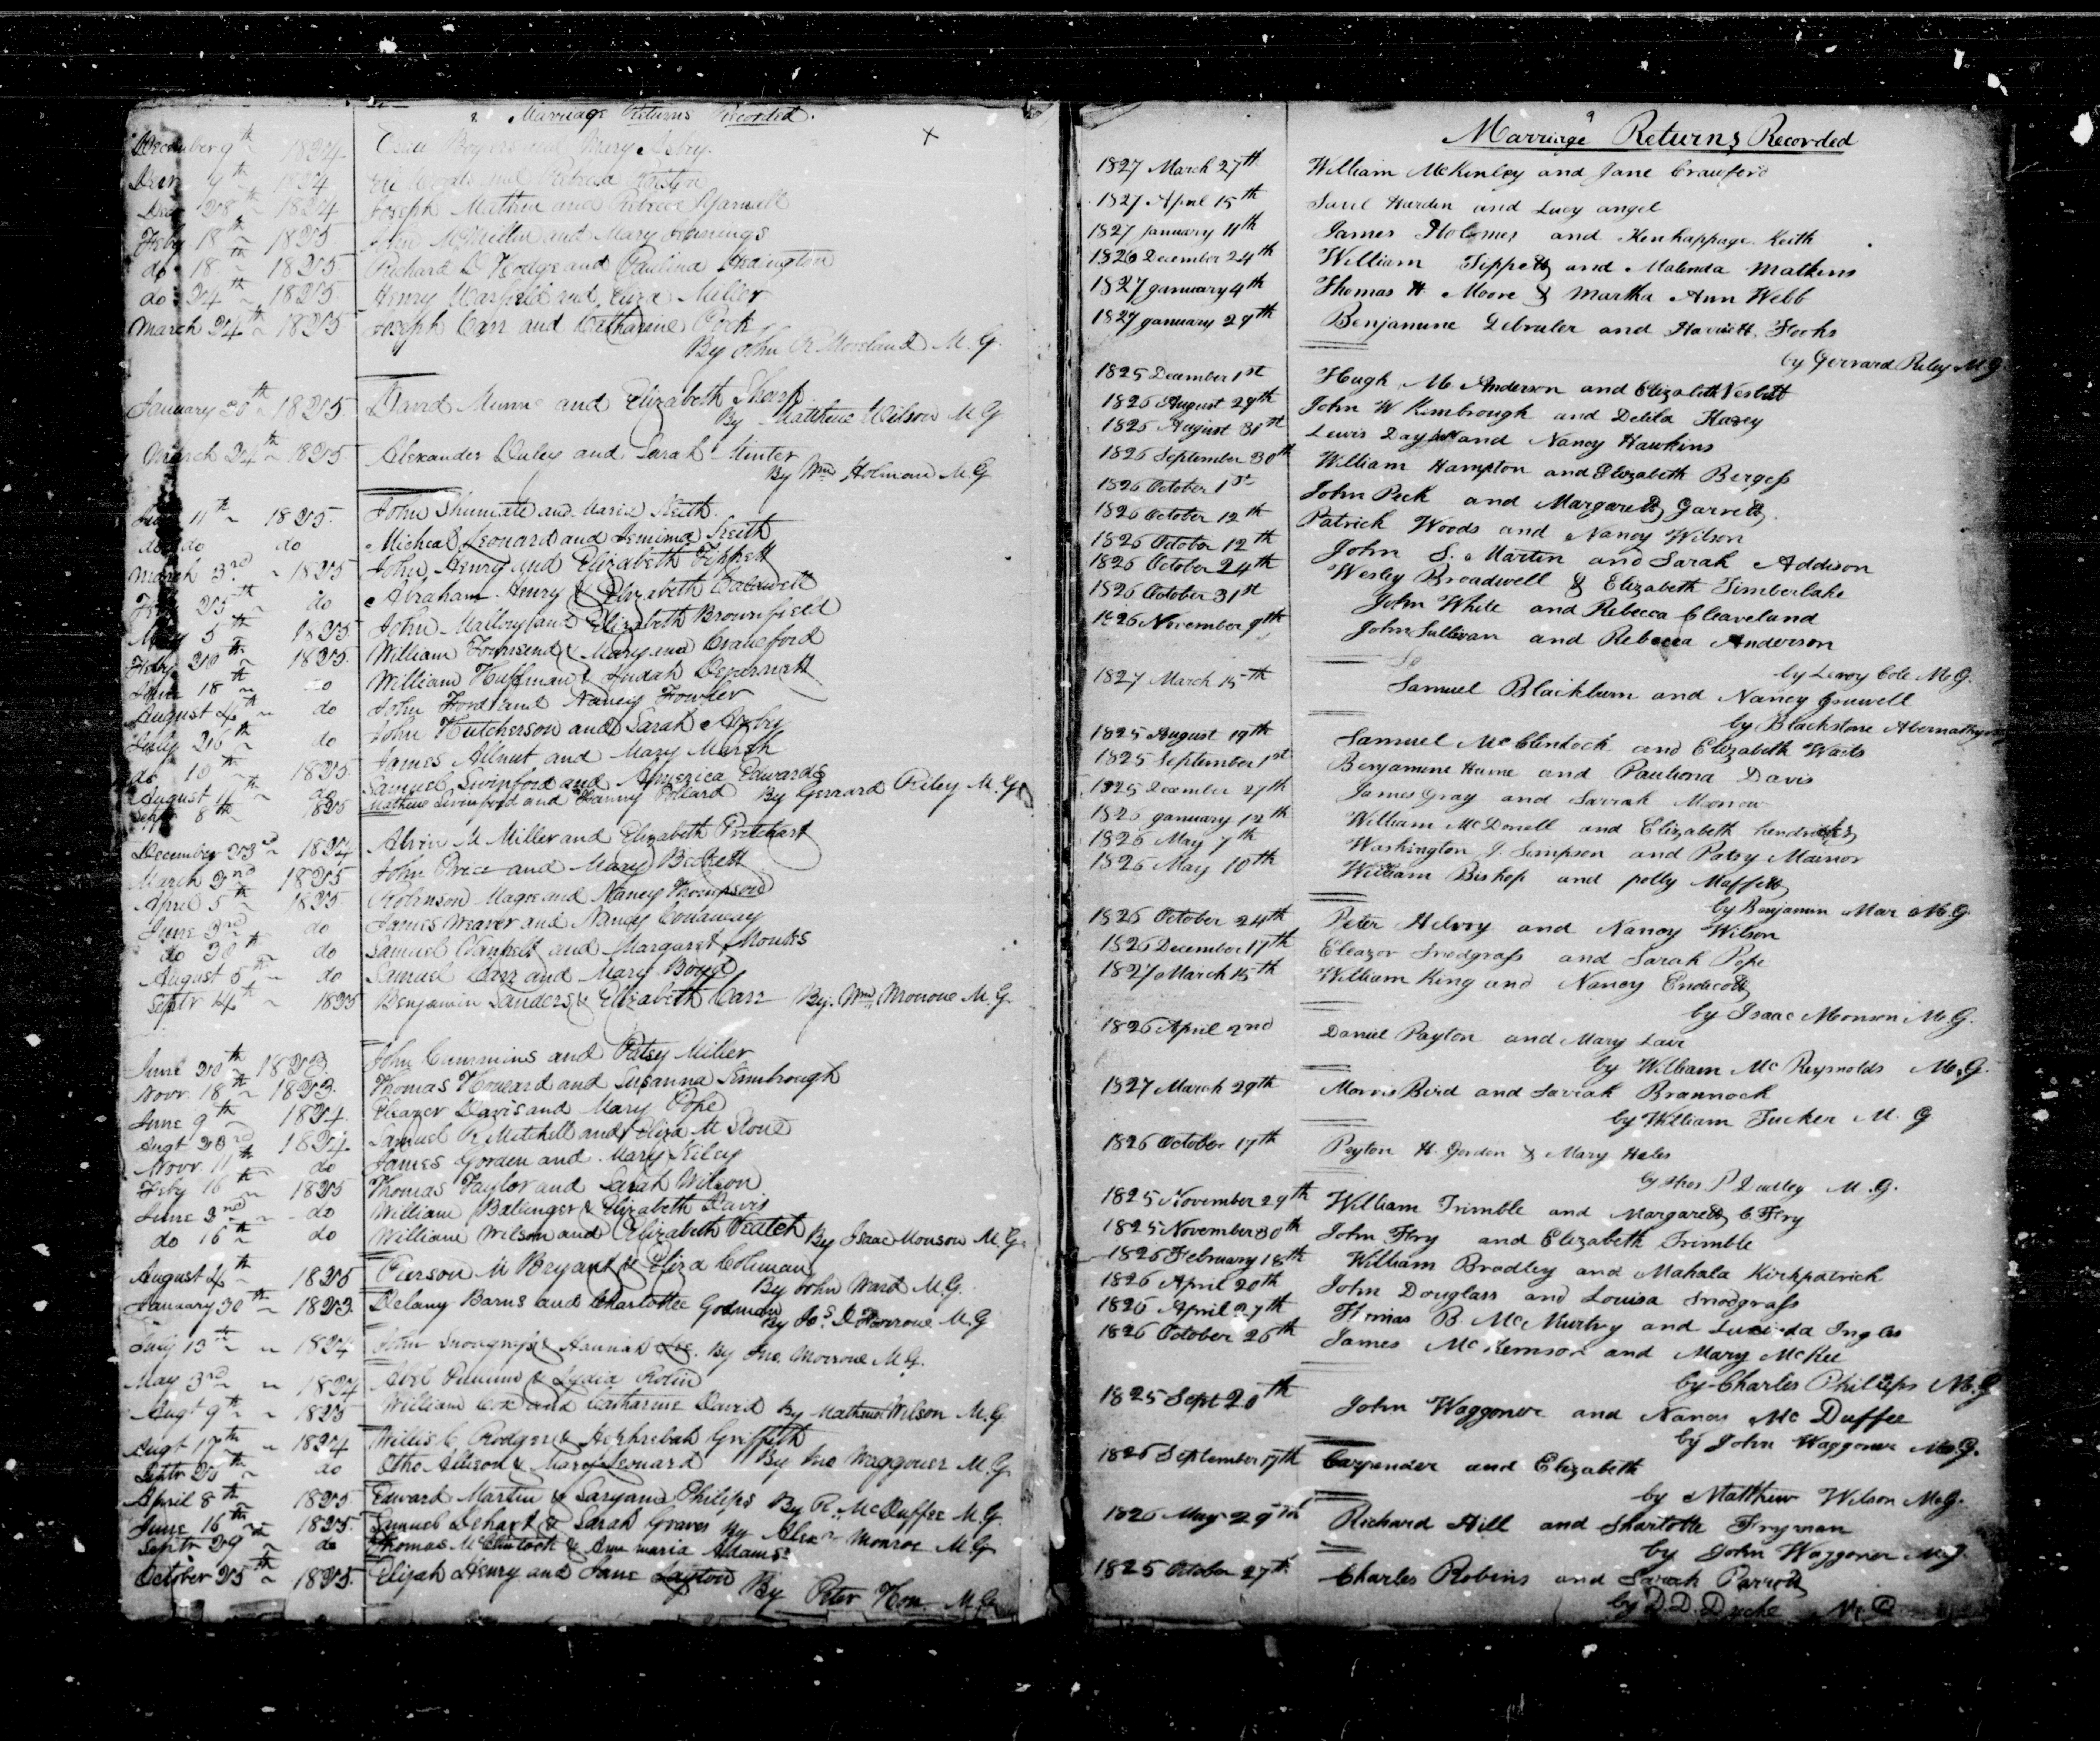 Marriage Returns Recorded.
December 9th 1824 Boyers and Mary Asbry.
Decr 9th 1824 Eli Woods and Rebecca
Decr 28th 1824 Joseph Mathew and Rebecca
Feby 18th 1825 John McMillin and Mary Jennings
do 18th 1825 Richard D Hodge and Paulina Hedington
do 24th 1825 Henry Warfield and Eliza Miller
March 24th 1825 Joseph Carr and Catharine Cook
By John R Moreland M.G.
January 30th 1825 David Munn and Elizabeth Sharp
By Mathew Wilson M G
March 24th 1825 Alexander Duley and Sarah Minter
By Wm Holman M G
11th 1825. John Shumate and Maria Keith.
do do do Micheal Leonard and Jemima Keith
March 3rd 1825 John Henry and Elizabeth Tippett
Feby 25th do Abraham Henry & Elizabeth Caldwell
May 5th 1825 John Mallory and Elizabeth Brownfield
Feby 20th 1825. William Townsend & Maryann Crawford
June 18th do William Huffman & Judah
August 4th do John Ford and Nancy Fowler
July 26th do John Hutcherson and Sarah
do 10th 1825. James Allnut and Mary Marsh
August 11th do Samuel Swinford and America Edwards
Septr 8th 1825 Mathew Swinford and Fanny Pollard By Gerrard Riley M.G.
December 23rd 1824 Alvin M Miller and Elizabeth Pritchart
March 2nd 1825 John Price and Mary Beckett
April 5th 1825. Robinson Magee and Nancy Thompson
June 3rd do James Weaver and Nancy Conaway
do 30th do Samuel and Margaret
August 5th do Samuel Carr and Mary Boyd
Septr 4th 1825 Benjamin Sanders & Elizabeth Carr By. Wm. Monroue M.G.
June 20th 1823. John Cummins and Patsy Miller
Novr. 18th 1823. Thomas Howard and Susanna Kimbrough
June 9th 1824. Eleazer Davis and Mary Pope
Augt 23rd 1824 Samuel R Mitchell and Eliza M Stone
Novr. 11th do James Gorden and Mary Kiley
Feby 16th 1825 Thomas Taylor and Sarah Wilson
June 2nd do William Ballinger & Elizabeth Davis
do 16th do William Wilson and Elizabeth Veatch By Isaac Monson M.G.
August 4th 1825 Pierson M Bryant & Eliza Coleman
By John Ward M.G.
January 30th 1823. Delany Barns and Charlottee Godman By Js. D Farrowe M.G
July 13th 1824 John Snodgrass & Hannah By Jno. Morrow M.G.
May 3rd 1824 Abel & Lydia
Augt 9th 1825 William Cox and Catharine David By Mathew Wilson M.G.
Augt 17th 1824 Willis C Rodgers & Hephzebah Griffith
Septr 25th do Otho Allison & Mary Leonard By Jno Waggoner M.G.
April 8th 1825. Edward Martin & Saryann Philips By R. McDuffee M.G.
June 16th 1825. Samuel Dehart & Sarah Graves By Alexr Monroe M.G
Septr 29 do Thomas McClintock & Ann Maria Adams
October 25th 1825. Elijah Henry and Jane Layton By Peter Hon M.G
9
Marriage Returns Recorded
1827 March 27th William McKinley and Jane Crawford
1827 April 15th Hardin and Lucy angel
1827 January 11th James Holomes and Kenhappage Keith
1826 December 24th William Tippett and Malinda Mathews
1827 January 4th Thomas H. Moore & Martha Ann Webb
1827 January 29th Benjamine Debruler and Harriett. Fooks
by Gerrard Riley M G
1825 December 1st Hugh M Anderson and Elizabeth Nesbitt
1826 August 29th John W Kimbrough and Delila Kasey
1826 August 31st Lewis Day and Nancy Hawkins
1826 September 30th William Hampton and Elizabeth Bergess
1826 October 1st John Peck and Margarett Garrett
1826 October 12th Patrick Woods and Nancy Wilson
1826 October 12th John S. Martin and Sarah Addison
1826 October 24th Wesley Broadwell & Elizabeth Timberlake
1826 October 31st John White and Rebecca Cleaveland
1826 November 9th John Sullivan and Rebecca Anderson
by Leroy Cole M.G.
1827 March 15th Samuel Blackburn and Nancy Gruwell
by Blackstone Abernathy
1825 August 19th Samuel McClintock and Elizabeth Waits
1825 September 1st Benjamine Hume and Pauliona Davis
1825 December 27th James Gray and Sarrah Monow
1826 January 12th William McDonell and Elizabeth hendricks
1826 May 7th Washington J. Simpson and Patsy Mainor
1826 May 10th William Bishop and polly Maffett
by Benjamin Mar M.G.
1826 October 24th Peter Helvoy and Nancy Wilson
1826 December 17th Eleazor Snodgrass and Sarah Pope
1827 March 15th William King and Nancy Endicott
by Isaac Monson M.G.
1826 April 2nd Daniel Payton and Mary Lair
by William McReynolds M.G.
1827 March 29th Morris Bird and Sarrah Brannock
by William Tucker M. G
1826 October 17th Peyton H. Gordon & Mary Heles
by Thos P Dudley M.G.
1825 November 29th William Trimble and Margarett C. Fry
1825 November 30th John Fry and Elizabeth Trimble
1826 February 18th William Bradley and Mahala Kirkpatrick
1826 April 20th John Douglass and Louisa Snodgrass
1826 April 27th Thomas B. McMurtry and Lucinda Ingles
1826 October 26th James McKemson and Mary McKee
by Charles Phillips M.G
1825 Sept 20th John Waggoner and Nancy McDuffee
by John Waggoner M.G.
1826 September 17th Carpender and Elizabeth
by Matthew Wilson M.G.
1826 May 29th Richard Hill and Sharlotte Fryman
by John Waggoner M.G
1825 October 27th Charles Robins and Sarah Parrott
by D.D. Dyche M.G